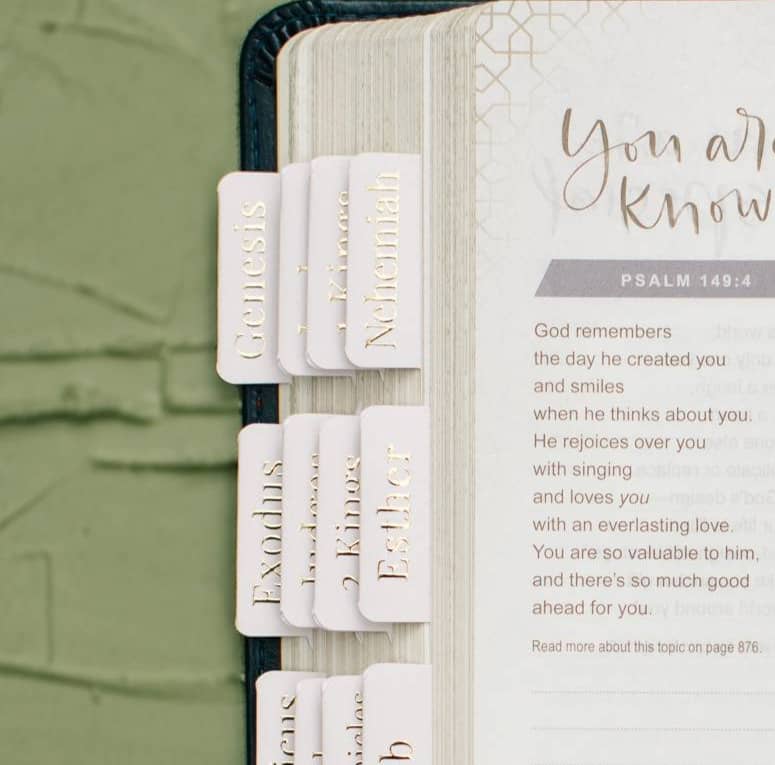 Genesis
Kings
Nehemiah
Exodus
Judges
2 Kings
Esther
You are
know
PSALM 149:4
God remembers
the day he created you
and smiles
when he thinks about you.
He rejoices over you
with singing
and loves you
with an everlasting love.
You are so valuable to him,
and there's so much good
ahead for you.
Read more about this topic on page 876.